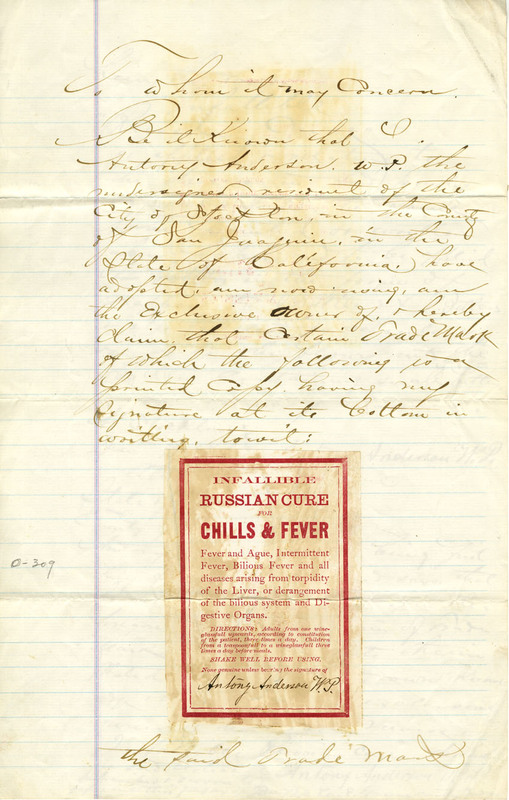 To whom it may Concern.
Be it Known that I.
Antony Anderson. W.P. the
undersigned, resident of the
City of Stockton, in the County
of San Joaquin, in the
State of California, have
adopted, am now using, am
the Exclusive owner of, & hereby
claim, that Certain Trade Mark
of which the following is a
printed Copy, having my
Signature at its bottom in
writting, towit:
INFALLIBLE
RUSSIAN CURE
FOR
CHILLS & FEVER
Fever and Ague, Intermittent
Fever, Bilious Fever and all
diseases arising from torpidity
of the Liver, or derangement
of the bilious system and Di-
gestive Organs.
DIRECTIONS: Adults from one wine-
glassfull upwards, according to constitution
of the patient, three times a day. Children
from a teaspoonfull to a wineglassfull three
times a day before meals.
SHAKE WELL BEFORE USING.
None genuine unless bearing the signature of
Antony Anderson W.P.
O-309
the said Trade Mark